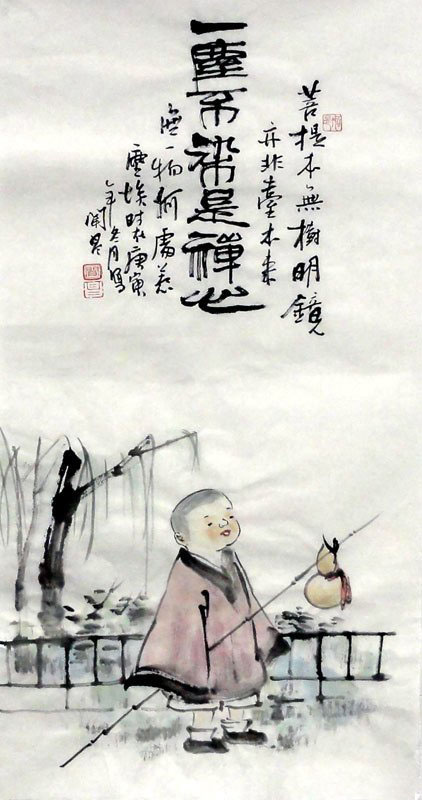 菩提本無樹明鏡
亦非臺本來
一塵不染是禪心
無一物何處惹
塵埃时在庚寅
年冬月寫